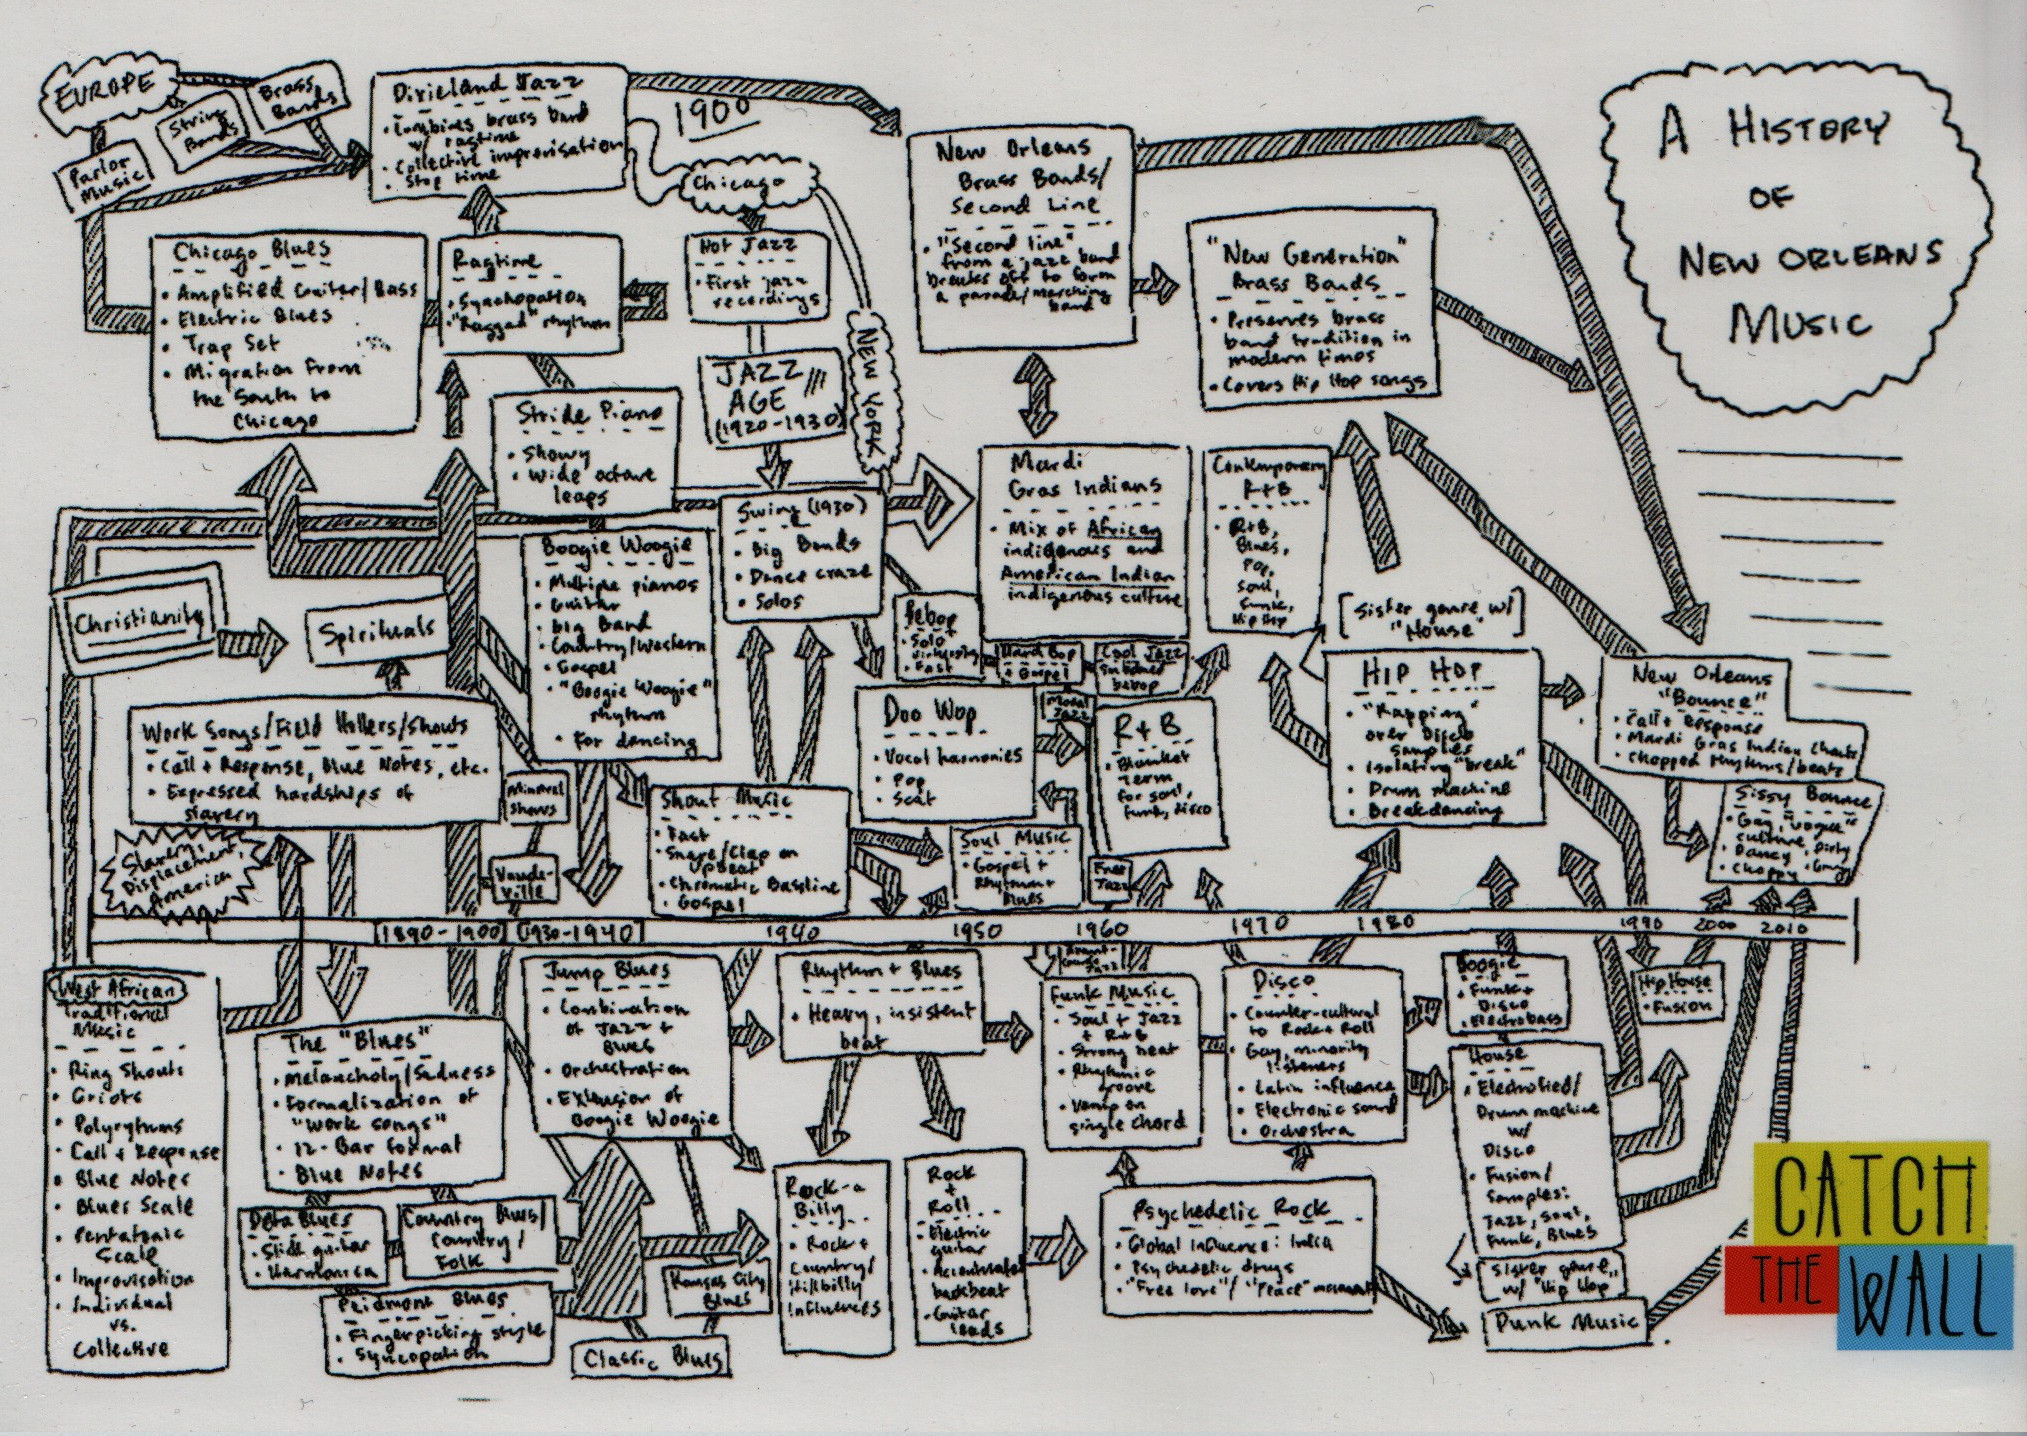 A HISTORY
OF
NEW ORLEANS
MUSIC
EUROPE
Brass
Bands
String
Bands
Parlor
Music
Dixieland Jazz
• Combines brass band
w/ ragtime
• Collective improvisation
• Stop time
1900
Chicago
NEW YORK
New Orleans
Brass Bands/
Second Line
• "Second line"
from a jazz band
breaks off to form
a parade/marching
band
"New Generation"
Brass Bands
• Preserves brass
band tradition in
modern times
• Covers Hip Hop songs
Chicago Blues
• Amplified Guitar/Bass
• Electric Blues
• Trap Set
• Migration from
the South to
Chicago
Ragtime
• Synchopation
• "Ragged" rhythm
Hot Jazz
• First jazz
recordings
JAZZ
AGE
(1920-1930)
Stride Piano
• Showy
• Wide octave
leaps
Swing (1930)
• Big Bands
• Dance craze
• Solos
Mardi
Gras Indians
• Mix of African
indigenous and
American Indian
indigenous culture
Contemporary
R+B
• R+B,
Blues,
Pop,
Soul,
Funk,
Hip Hop
Christianity
Spirituals
Boogie Woogie
• Multiple pianos
• Guitar
• Big Band
• Country/Western
• Gospel
• "Boogie Woogie"
rhythm
• For dancing
Bebop
• Solo
• Fast
Hard Bop
+ Gospel
Cool Jazz
bebop
Modal
Jazz
[Sister genre w/
"House"]
Work Songs/Field Hollers/Shouts
• Call + Response, Blue Notes, etc.
• Expressed hardships of
slavery
Slavery,
Displacement,
America
Minstrel
Shows
Vaude-
ville
Shout Music
• Fast
• Snare/Clap on
upbeat
• Chromatic Bassline
• Gospel
Doo Wop
• Vocal harmonies
• Pop
• Scat
R+B
• Blanket
term
for soul,
funk, disco
Soul Music
• Gospel +
Rhythm +
Blues
Free
Jazz
HIP HOP
• "Rapping"
over Disco
samples
• Isolating "break"
• Drum machine
• Breakdancing
New Orleans
"Bounce"
• Call + Response
• Mardi Gras Indian Chants
• Chopped rhythms/beats
Sissy Bounce
• Gay, "vogue"
culture, Dirty
• Dancy
• Choppy
1890-1900
1930-1940
1940
1950
1960
1970
1980
1990
2000
2010
West African
Traditional
Music
• Ring Shouts
• Griots
• Polyrythms
• Call + Response
• Blue Notes
• Blues Scale
• Pentatonic
Scale
• Improvisation
• Individual
vs.
Collective
The "Blues"
• Melancholy/Sadness
• Formalization of
"work songs"
• 12-Bar format
• Blue Notes
Delta Blues
• Slide guitar
• Harmonica
Country Blues/
Country/
Folk
Peidmont Blues
• Fingerpicking style
• Syncopation
Classic Blues
Kansas City
Blues
Jump Blues
• Combination
of Jazz +
Blues
• Orchestration
• Extension of
Boogie Woogie
Rhythm + Blues
• Heavy, insistent
beat
Rock-a
Billy
• Rock +
Country/
Hillbilly
influences
Rock
+
Roll
• Electric
guitar
backbeat
• Guitar
leads
Avant-
Garde
Jazz
Funk Music
• Soul + Jazz
+ R+B
• Strong beat
• Rhythmic
groove
• Vamp on
single chord
Disco
• Counter-cultural
to Rock + Roll
• Gay, minority
listeners
• Latin influence
• Electronic sound
• Orchestra
Psychedelic Rock
• Global Influence: India
• Psychedelic drugs
• "Free love"/"Peace" movement
Boogie
• Funk +
Disco
• Electrobass
House
• Electrofied/
Drum machine
w/
Disco
• Fusion/
Samples:
Jazz, Soul,
Funk, Blues
Sister genre
w/ "Hip Hop"
Hip House
• Fusion
Punk Music
CATCH
THE WALL